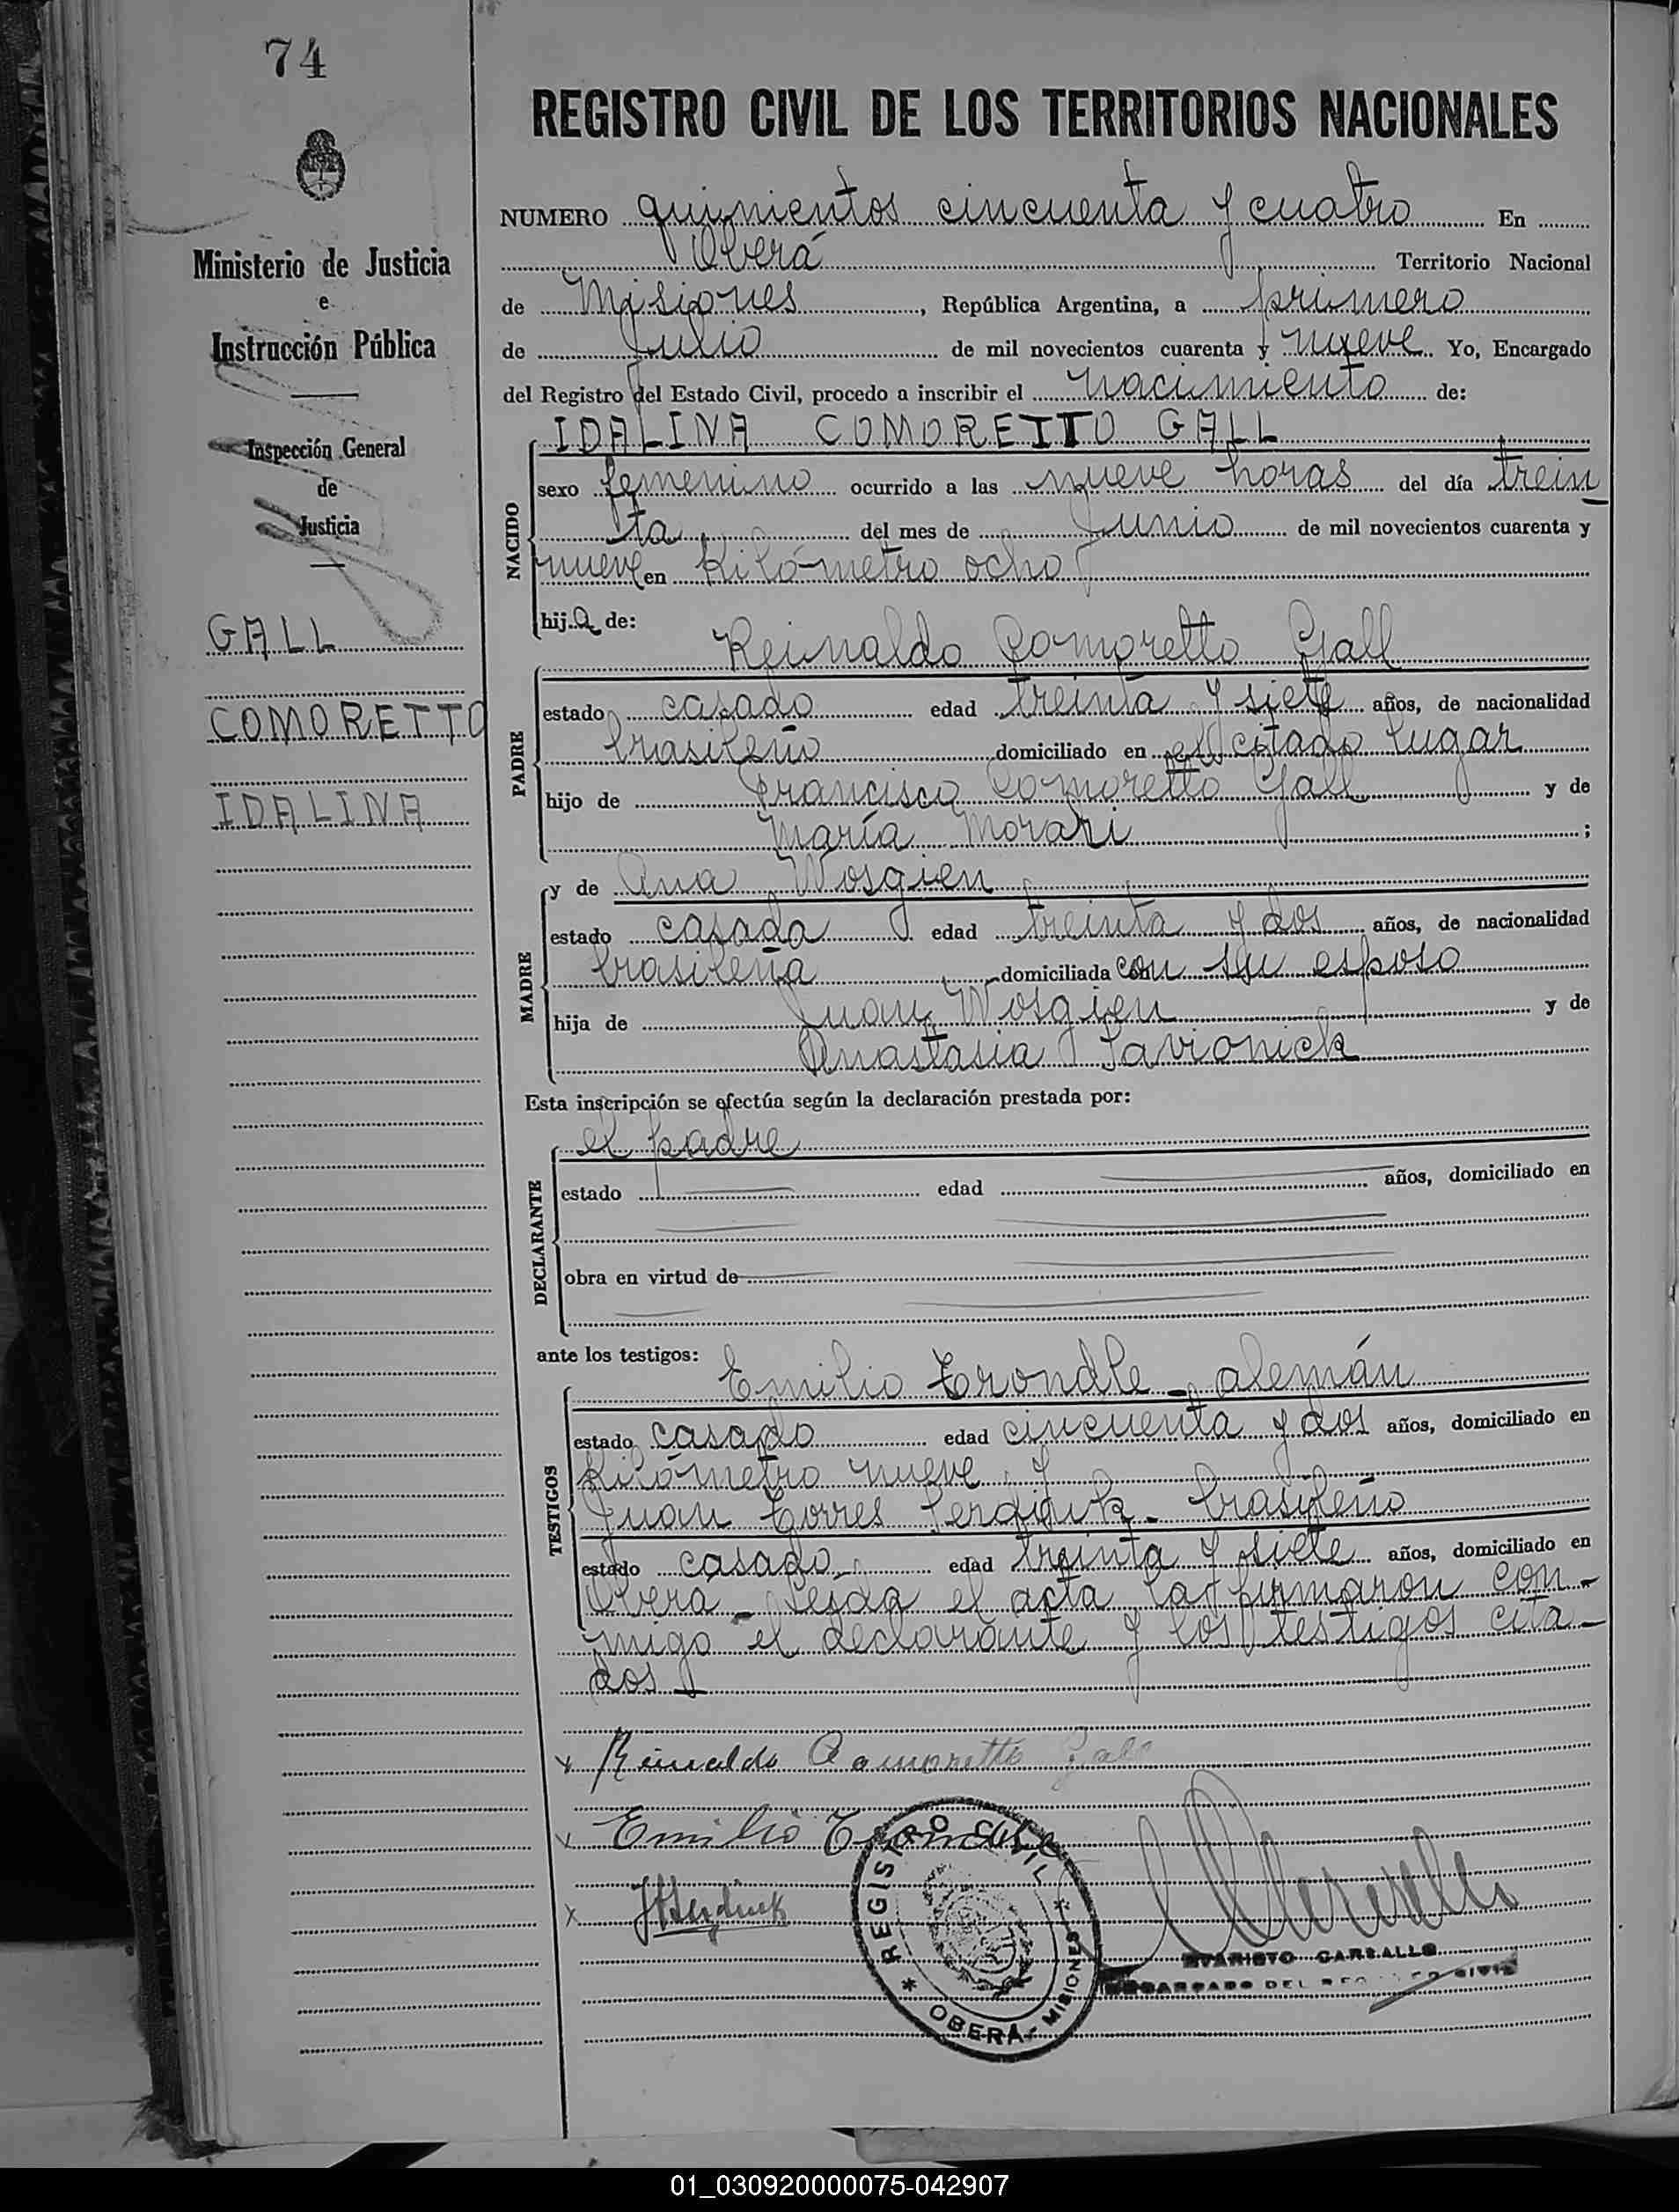 74
REGISTRO CIVIL DE LOS TERRITORIOS NACIONALES
Ministerio de Justicia
e
Instrucción Pública
Inspección General
de
Justicia
GALL
COMORETTO
IDALINA
NUMERO quinientos cincuenta y cuatro En
Oberá Territorio Nacional
de Misiones, República Argentina, a primero
de Julio de mil novecientos cuarenta y nueve. Yo, Encargado
del Registro del Estado Civil, procedo a inscribir el nacimiento de:
IDALINA COMORETTO GALL
NACIDO
sexo femenino ocurrido a las nueve horas del día trein
ta del mes de Junio de mil novecientos cuarenta y
nueve en Kilómetro ocho
hija de:
Reinaldo Comoretto Gall
PADRE
estado casado edad treinta y siete años, de nacionalidad
brasileño domiciliado en el citado lugar
hijo de Francisco Comoretto Gall y de
María Morari;
MADRE
y de Ana Wosgien
estado casada edad treinta y dos años, de nacionalidad
brasileña domiciliada con su esposo
hija de Juan Wosgien y de
Anastasia Savionick
Esta inscripción se efectúa según la declaración prestada por:
el padre
DECLARANTE
estado edad años, domiciliado en
obra en virtud de
ante los testigos:
Emilio Trondle - alemán
TESTIGOS
estado casado edad cincuenta y dos años, domiciliado en
Kilómetro nueve y
Juan Torres - brasileño
estado casado edad treinta y siete años, domiciliado en
Oberá - Leida el acta la firmaron con-
migo el declarante y los testigos cita-
dos
x Reinaldo Comoretto Gall
x Emilio Trondle
x
REGISTRO CIVIL
* OBERÁ - MISIONES *
EVARISTO CARBALLO
ENCARGADO DEL REGISTRO CIVIL
01_030920000075-042907